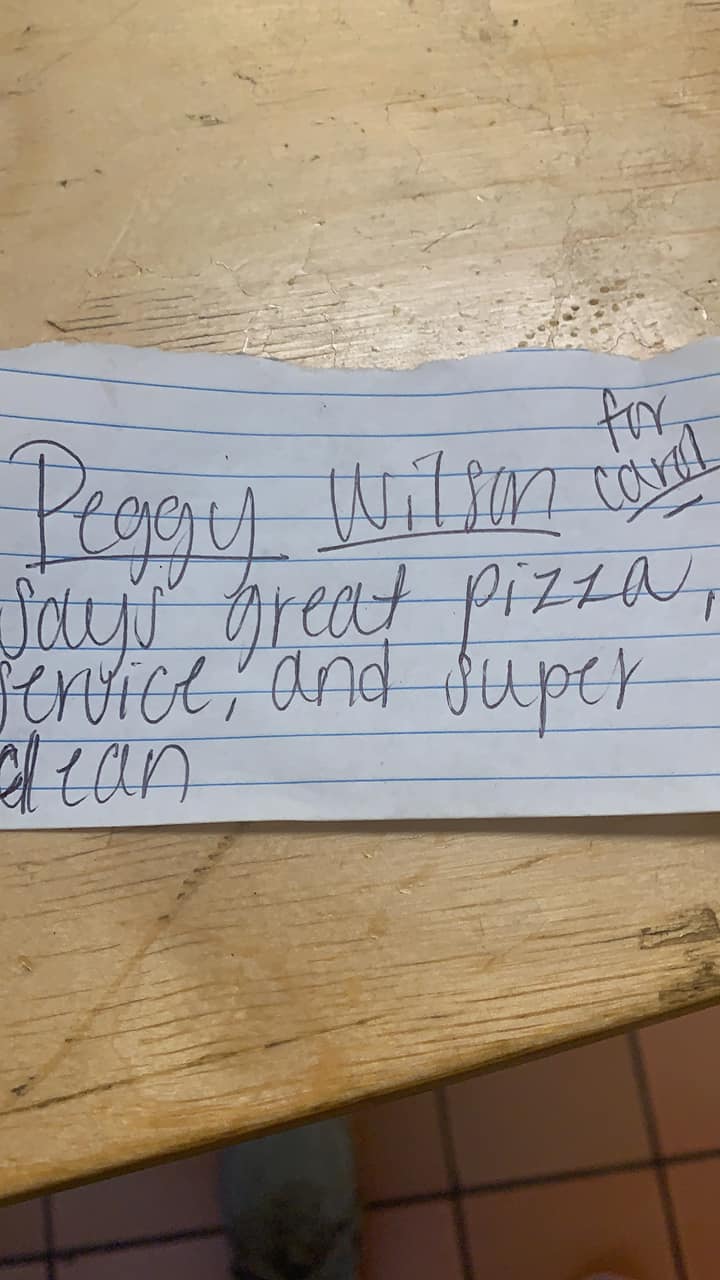 for
Peggy Wilson carol
says great pizza,
service, and super
clean